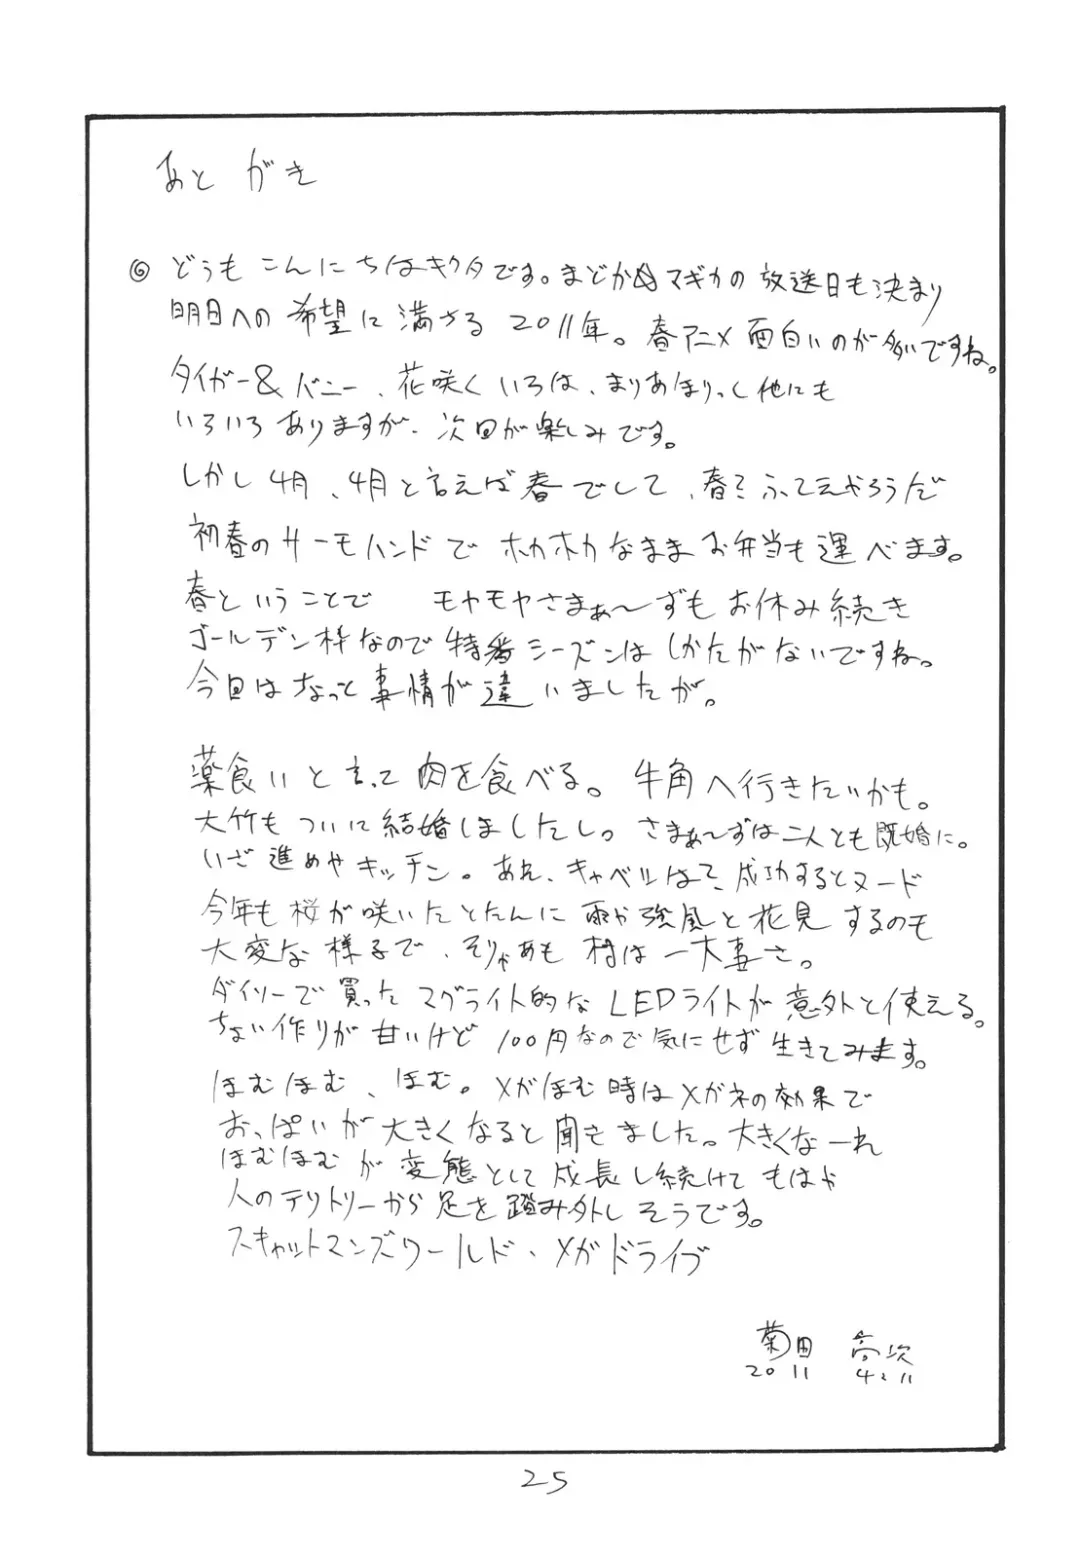 あとがき
◎ どうもこんにちはキクタです。まどか☆マギカの放送日も決まり
明日への希望に満ちる2011年。春アニメ面白いのが多いですね。
タイガー&バニー、花咲くいろは、まりあほりっく他にも
いろいろありますが、次回が楽しみです。
しかし4月、4月と言えば春でして、春
初春のサーモハンドでホカホカなままお弁当も運べます。
春ということで モヤモヤさまぁ〜ずもお休み続き
ゴールデン枠なので特番シーズンはしかたがないですね。
今回はなっと事情が違いましたが。
薬食いと言って肉を食べる。牛角へ行きたいかも。
大竹もついに結婚しましたし。さまぁ〜ずは二人とも既婚に。
いざ進めやキッチン。あれ、キャベツはて、成功するとヌード
今年も桜が咲いたとたんに雨や強風と花見するのも
大変な様子で、そりゃあも村は一大事さ。
ダイソーで買ったマグライト的なLEDライトが意外と使える。
ちょい作りが甘いけど100円なので気にせず生きてみます。
ほむほむ、ほむ。メガほむ時はメガネの効果で
おっぱいが大きくなると聞きました。大きくなーれ
ほむほむが変態として成長し続けてもはや
人のテリトリーから足を踏み外しそうです。
スキャットマンズワールド、メガドライブ
菊田 高次
2011 4.11
25